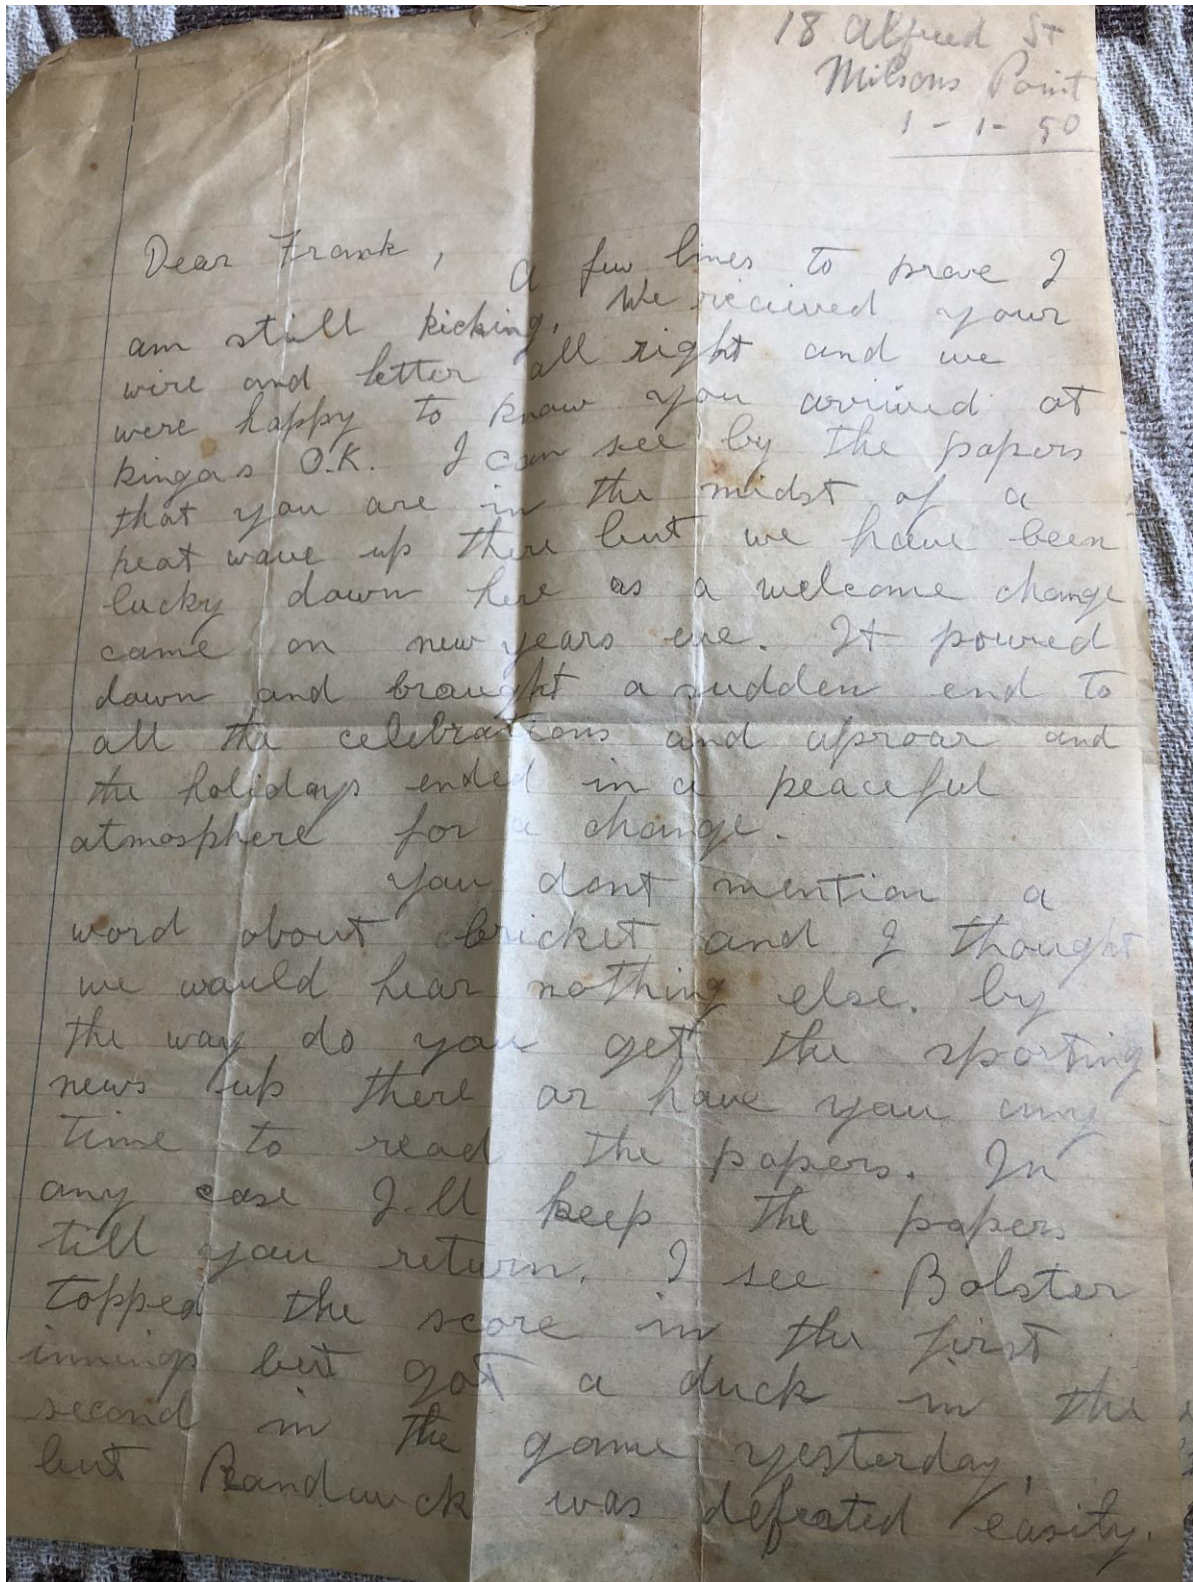 18 Alfred St
Milsons Point
1-1-50
Dear Frank, A few lines to prove I
am still kicking. We recieved your
wire and letter all right and we
were happy to know you arrived at
kingas O.K. I can see by the papers
that you are in the midst of a
heat wave up there but we have been
lucky down here as a welcome change
came on new years eve. It poured
down and brought a sudden end to
all the celebrations and uproar and
the holidays ended in a peaceful
atmosphere for a change.
You dont mention a
word about cricket and I thought
we would hear nothing else. by
the way do you get the sporting
news up there or have you any
time to read the papers. In
any case I.ll keep the papers
till you return. I see Bolster
topped the score in the first
innings but got a duck in the
second in the game yesterday,
but Randwick was defeated easily.